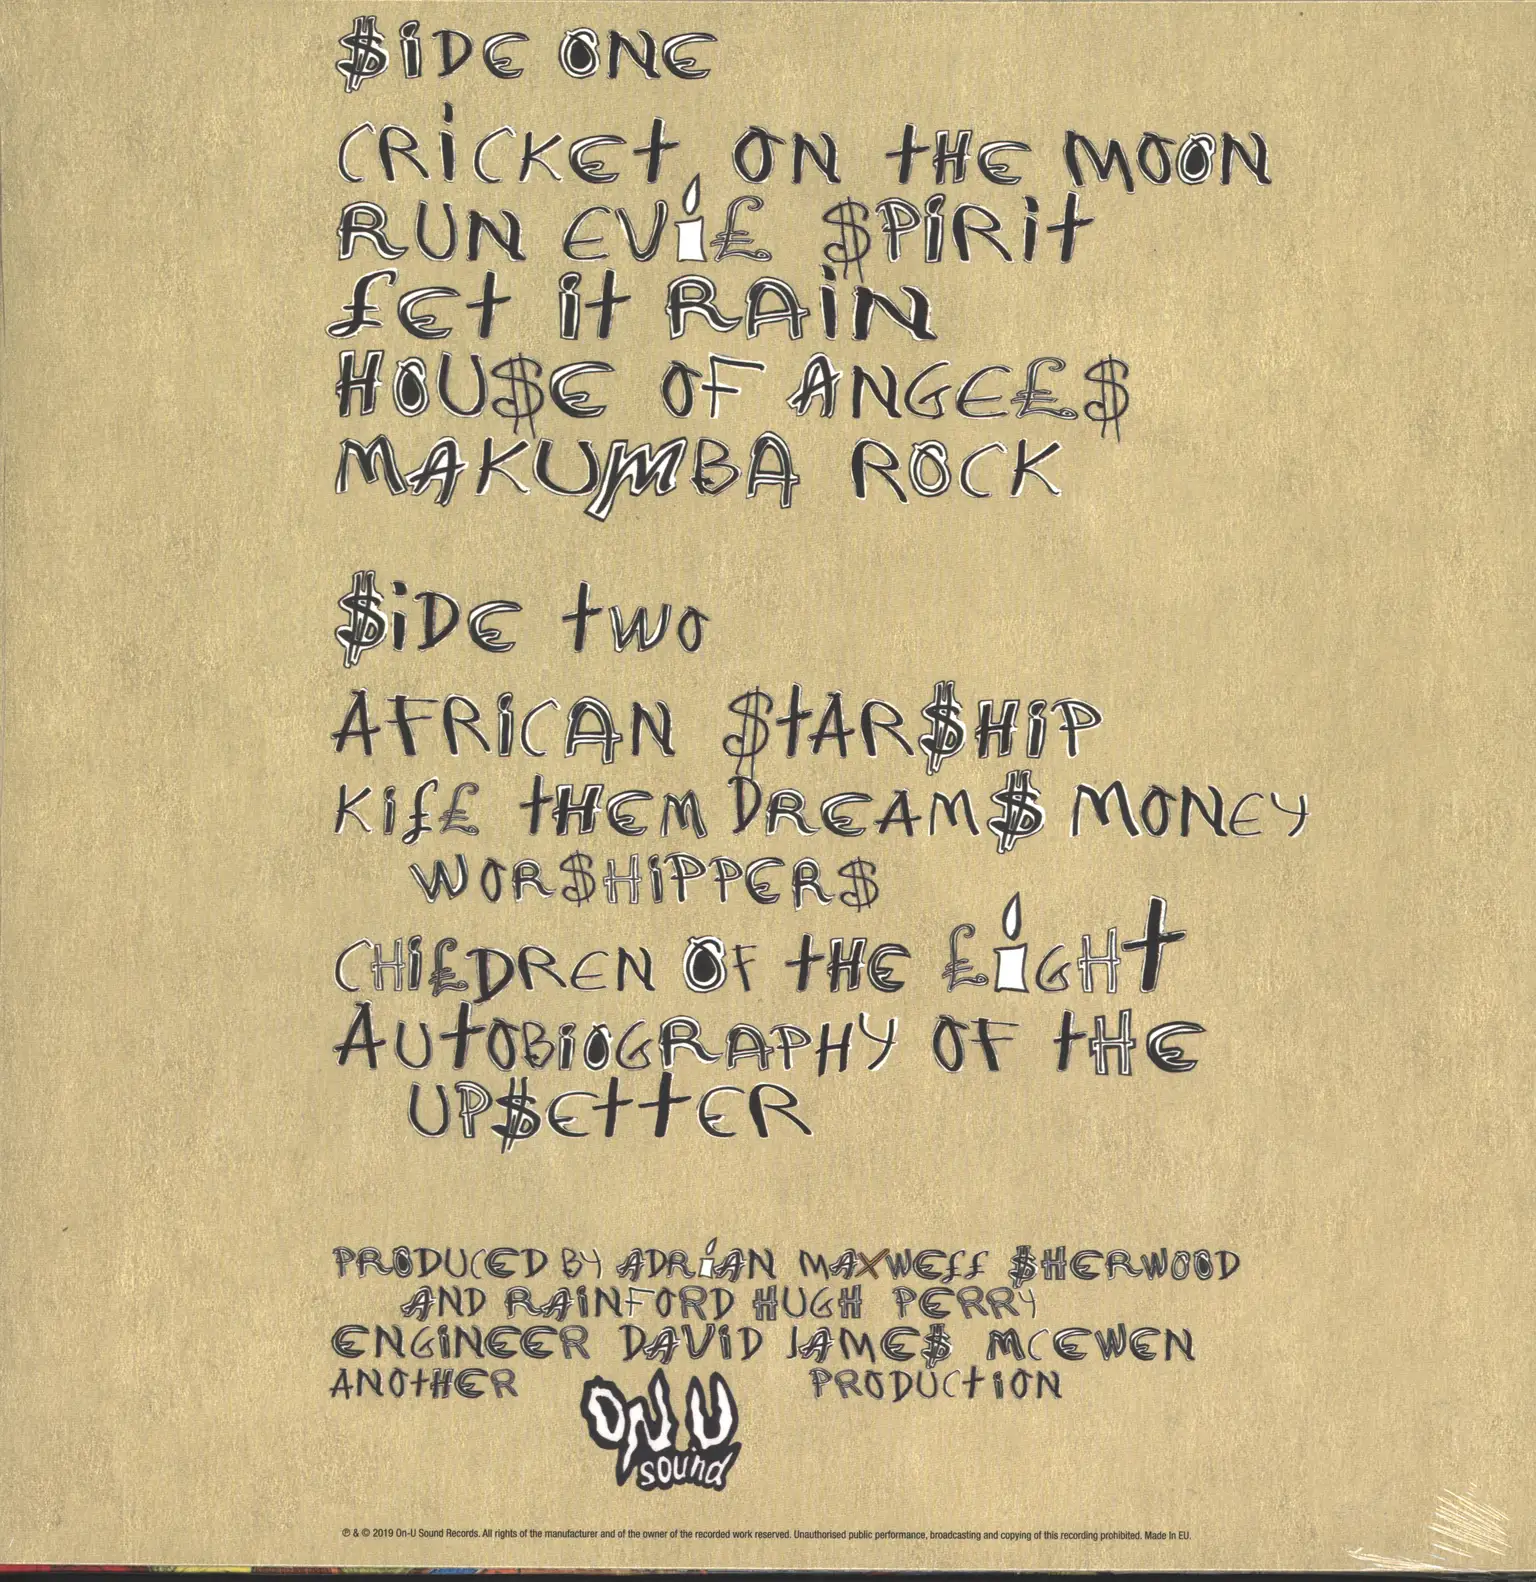 $iDE ONE
CRiCKEt ON tHE MOON
RUN EVi£ $PiRit
£Et it RAiN
HOU$E OF ANGE£$
MAKUMBA ROCK
$iDE tWO
AFRiCAN $tAR$HiP
Ki££ tHEM DREAM$ MONEY
WOR$HiPPER$
CHi£DREN OF tHE £iGHt
AUtOBiOGRAPHY OF tHE
UP$EttER
PRODUCED BY ADRiAN MAXWE££ $HERWOOD
AND RAiNFORD HUGH PERRY
ENGiNEER DAViD JAME$ MCEWEN
ANOtHER ON U sound PRODUCtiON
℗ & © 2019 On-U Sound Records. All rights of the manufacturer and of the owner of the recorded work reserved. Unauthorised public performance, broadcasting and copying of this recording prohibited. Made In EU.